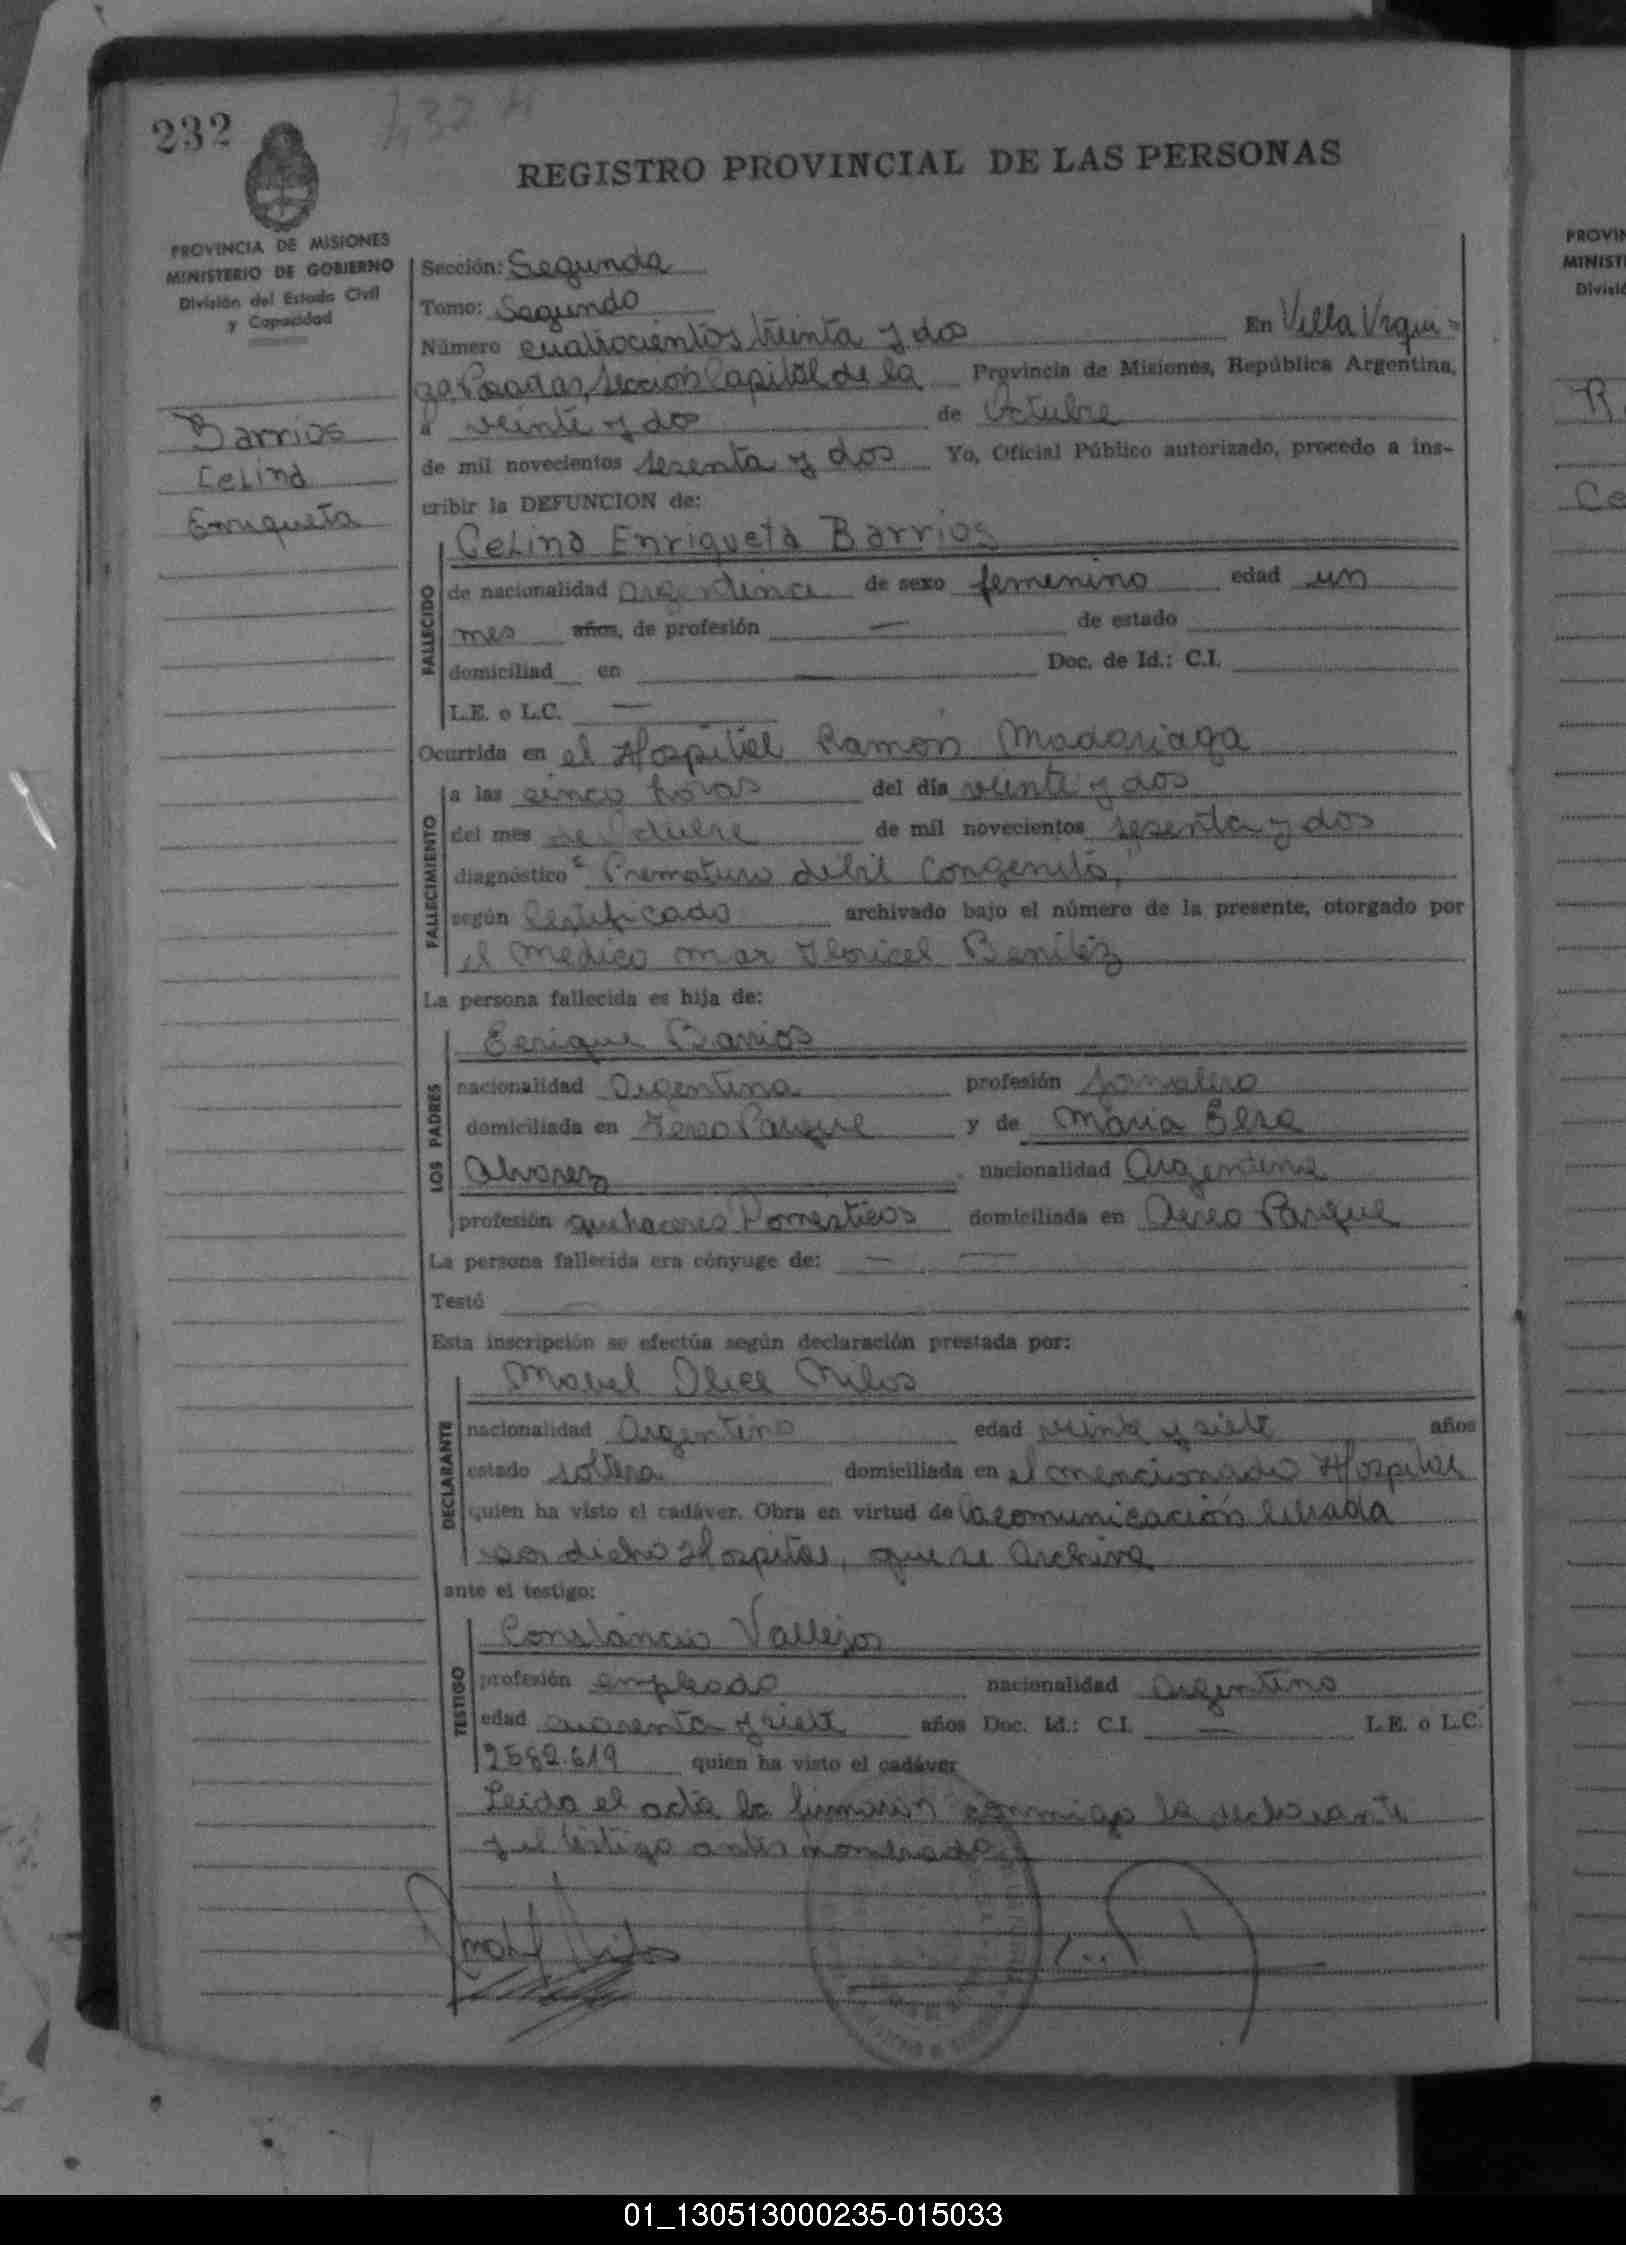 232
432
REGISTRO PROVINCIAL DE LAS PERSONAS
PROVINCIA DE MISIONES
MINISTERIO DE GOBIERNO
División del Estado Civil
y Capacidad
Barrios
Celina
Enriqueta
Sección: Segunda
Tomo: Segundo
Número cuatrocientos treinta y dos En Villa Urqui=
za Posadas, Sección Capital de la Provincia de Misiones, República Argentina,
a veinte y dos de Octubre
de mil novecientos sesenta y dos Yo, Oficial Público autorizado, procedo a ins-
cribir la DEFUNCION de:
FALLECIDO
Celina Enriqueta Barrios
de nacionalidad argentina de sexo femenino edad un
mes años, de profesión — de estado
domiciliad en — Doc. de Id.: C.I.
L.E. o L.C. —
Ocurrida en el Hospital Ramón Madariaga
FALLECIMIENTO
a las cinco horas del día veinte y dos
del mes de Octubre de mil novecientos sesenta y dos
diagnóstico "Prematuro débil Congenito,"
según Certificado archivado bajo el número de la presente, otorgado por
el Medico Benitez
La persona fallecida es hija de:
LOS PADRES
Enrique Barrios
nacionalidad Argentina profesión Jornalero
domiciliada en Aereo Parque y de Maria
Alvarez nacionalidad Argentina
profesión quehaceres Domesticos domiciliada en Aereo Parque
La persona fallecida era cónyuge de: — —
Testó
Esta inscripción se efectúa según declaración prestada por:
DECLARANTE
Mabel
nacionalidad Argentina edad veinte y siete años
estado soltera domiciliada en el mencionado Hospital
quien ha visto el cadáver. Obra en virtud de la comunicación librada
por dicho Hospital, que se archiva
ante el testigo:
TESTIGO
Constancio Vallejos
profesión empleado nacionalidad Argentino
edad cuarenta y siete años Doc. Id.: C.I. — L.E. o L.C.
2582.619 quien ha visto el cadáver
Leida el acta la firmaron conmigo la declarante
y el testigo antes nombrados
PROVIN
MINIST
Divisió
Ce
01_130513000235-015033